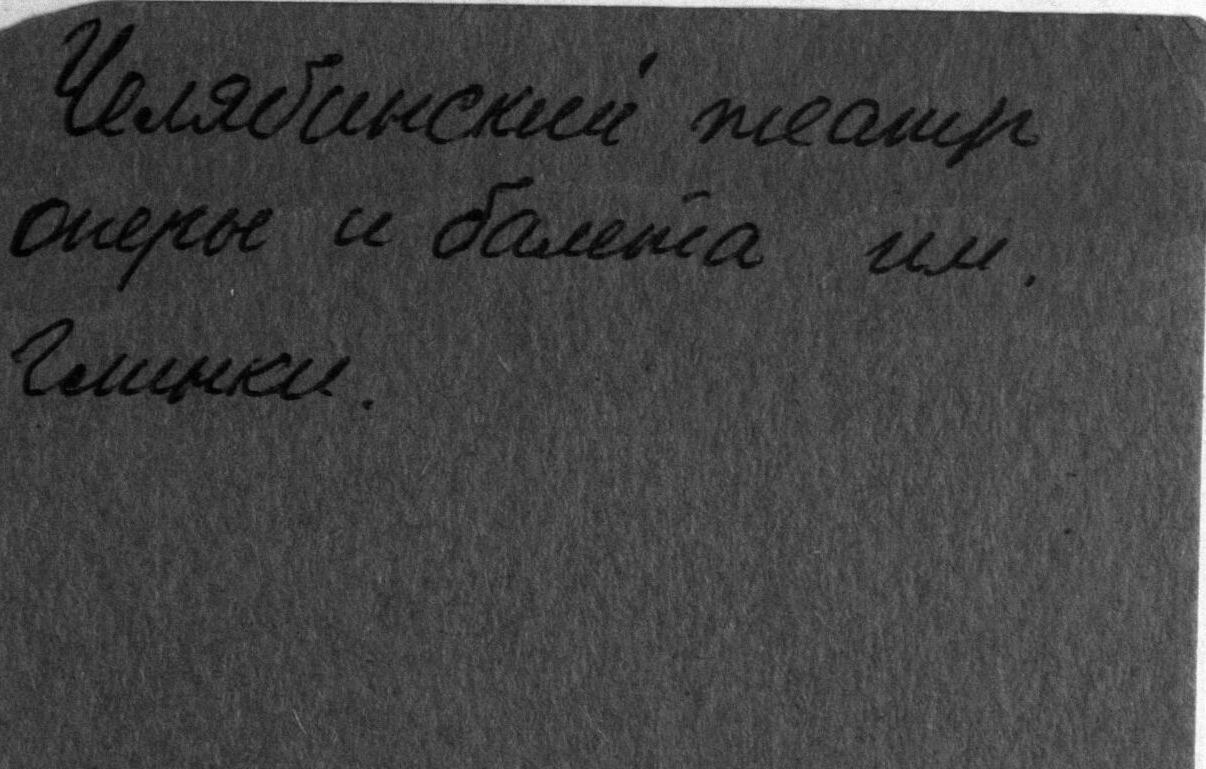 Челябинский театр
оперы и балета им.
Глинки.